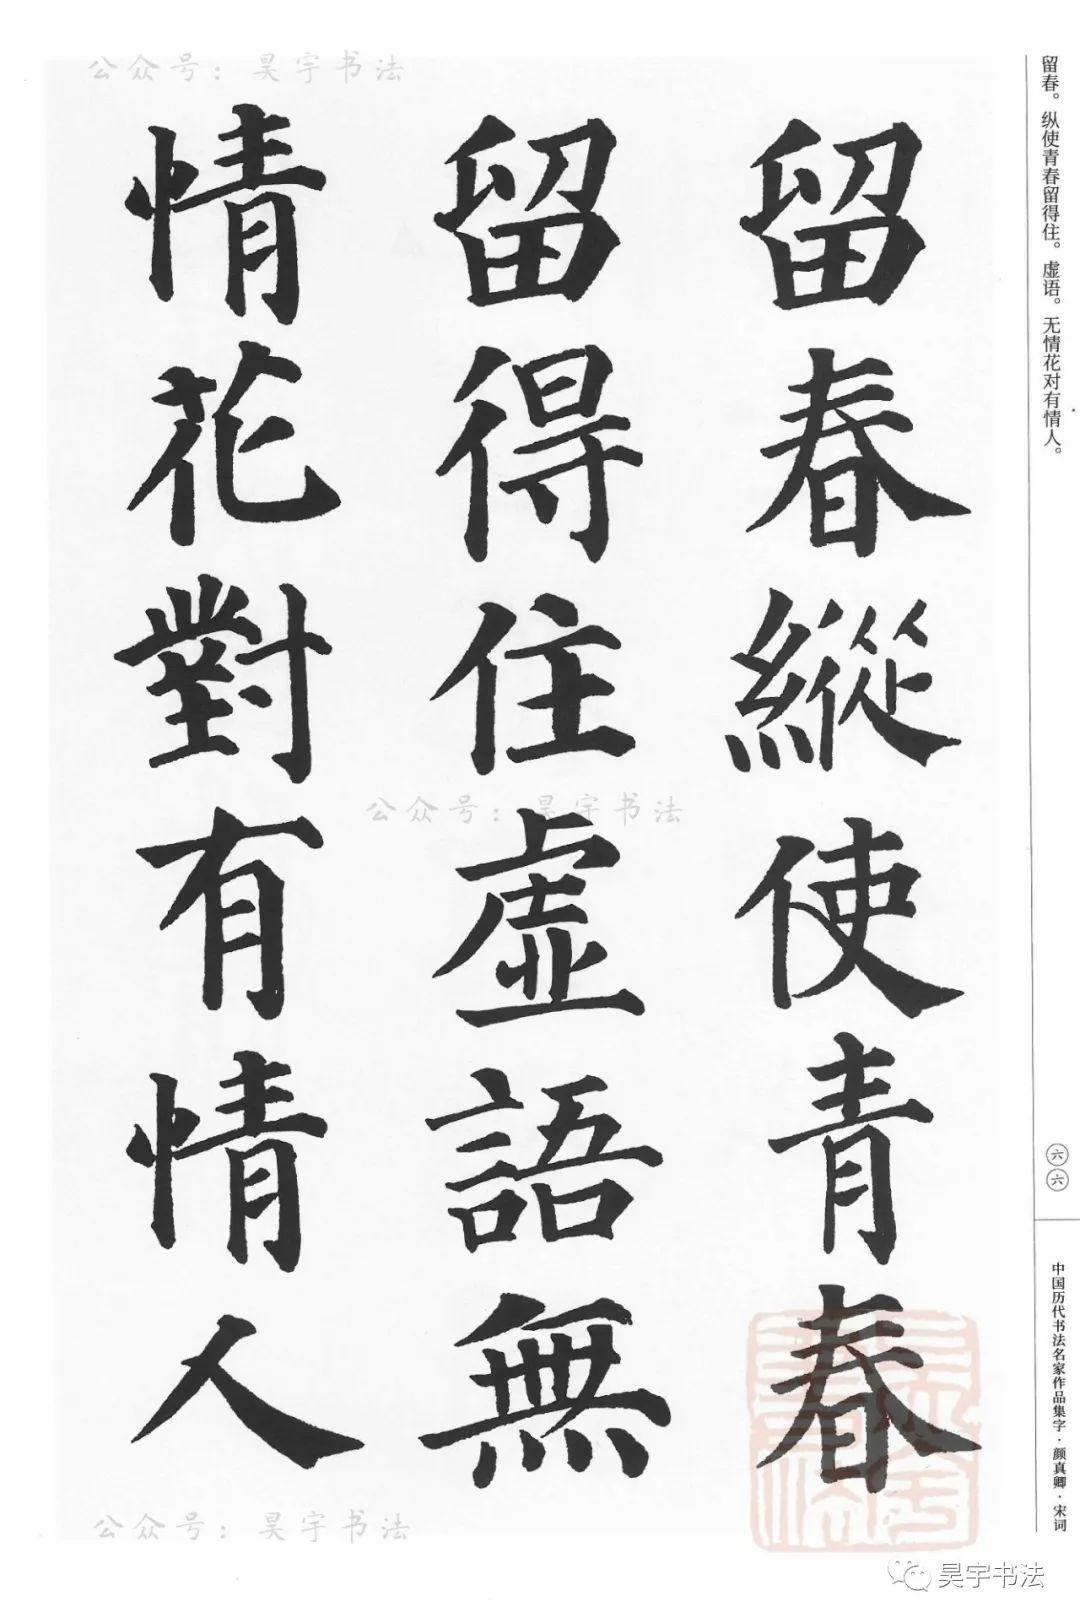 公众号：昊宇书法
留春縱使青春
留得住虛語無
情花對有情人
留春。纵使青春留得住。虚语。无情花对有情人。
公众号：昊宇书法
六六
中国历代书法名家作品集字·颜真卿·宋词
公众号：昊宇书法
昊宇书法